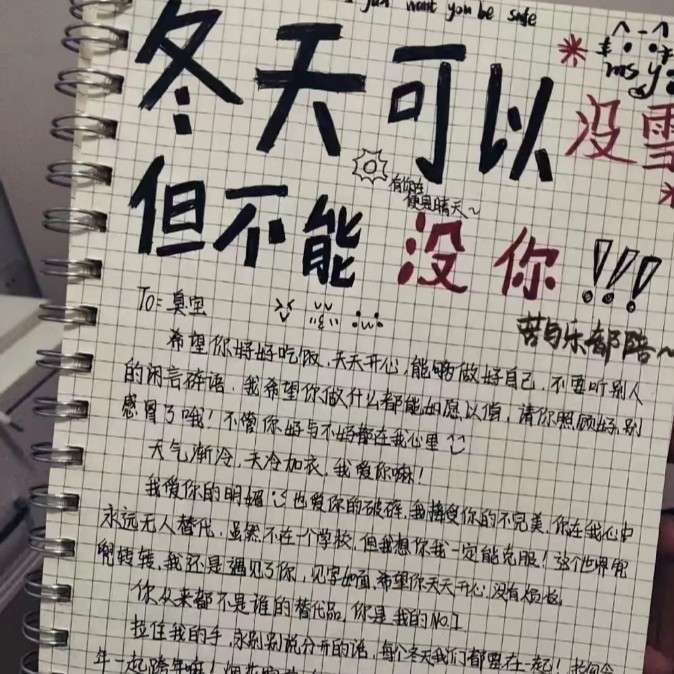 just want you be safe
冬天可以没雪
有你在
便是晴天~
但不能没你!!!
苦与乐都陪~
To=真空
希望你好好吃饭,天天开心,能够做好自己,不要听别人
的闲言碎语,我希望你做什么都能如愿以偿,请你照顾好,别
感冒了哦!不管你好与不好都在我心里
天气渐冷,天冷加衣,我爱你嘛!
我爱你的明媚 也爱你的破碎,我接受你的不完美,你在我心中
永远无人替代,虽然不在一个学校,但我想你我一定能克服!这个世界兜
兜转转,我还是遇见了你,见字如面,希望你天天开心,没有烦恼,
你从来都不是谁的替代品,你是我的NO.1
拉住我的手,永别别说分开的话,每个冬天我们都要在一起!
年一起跨年嘛!